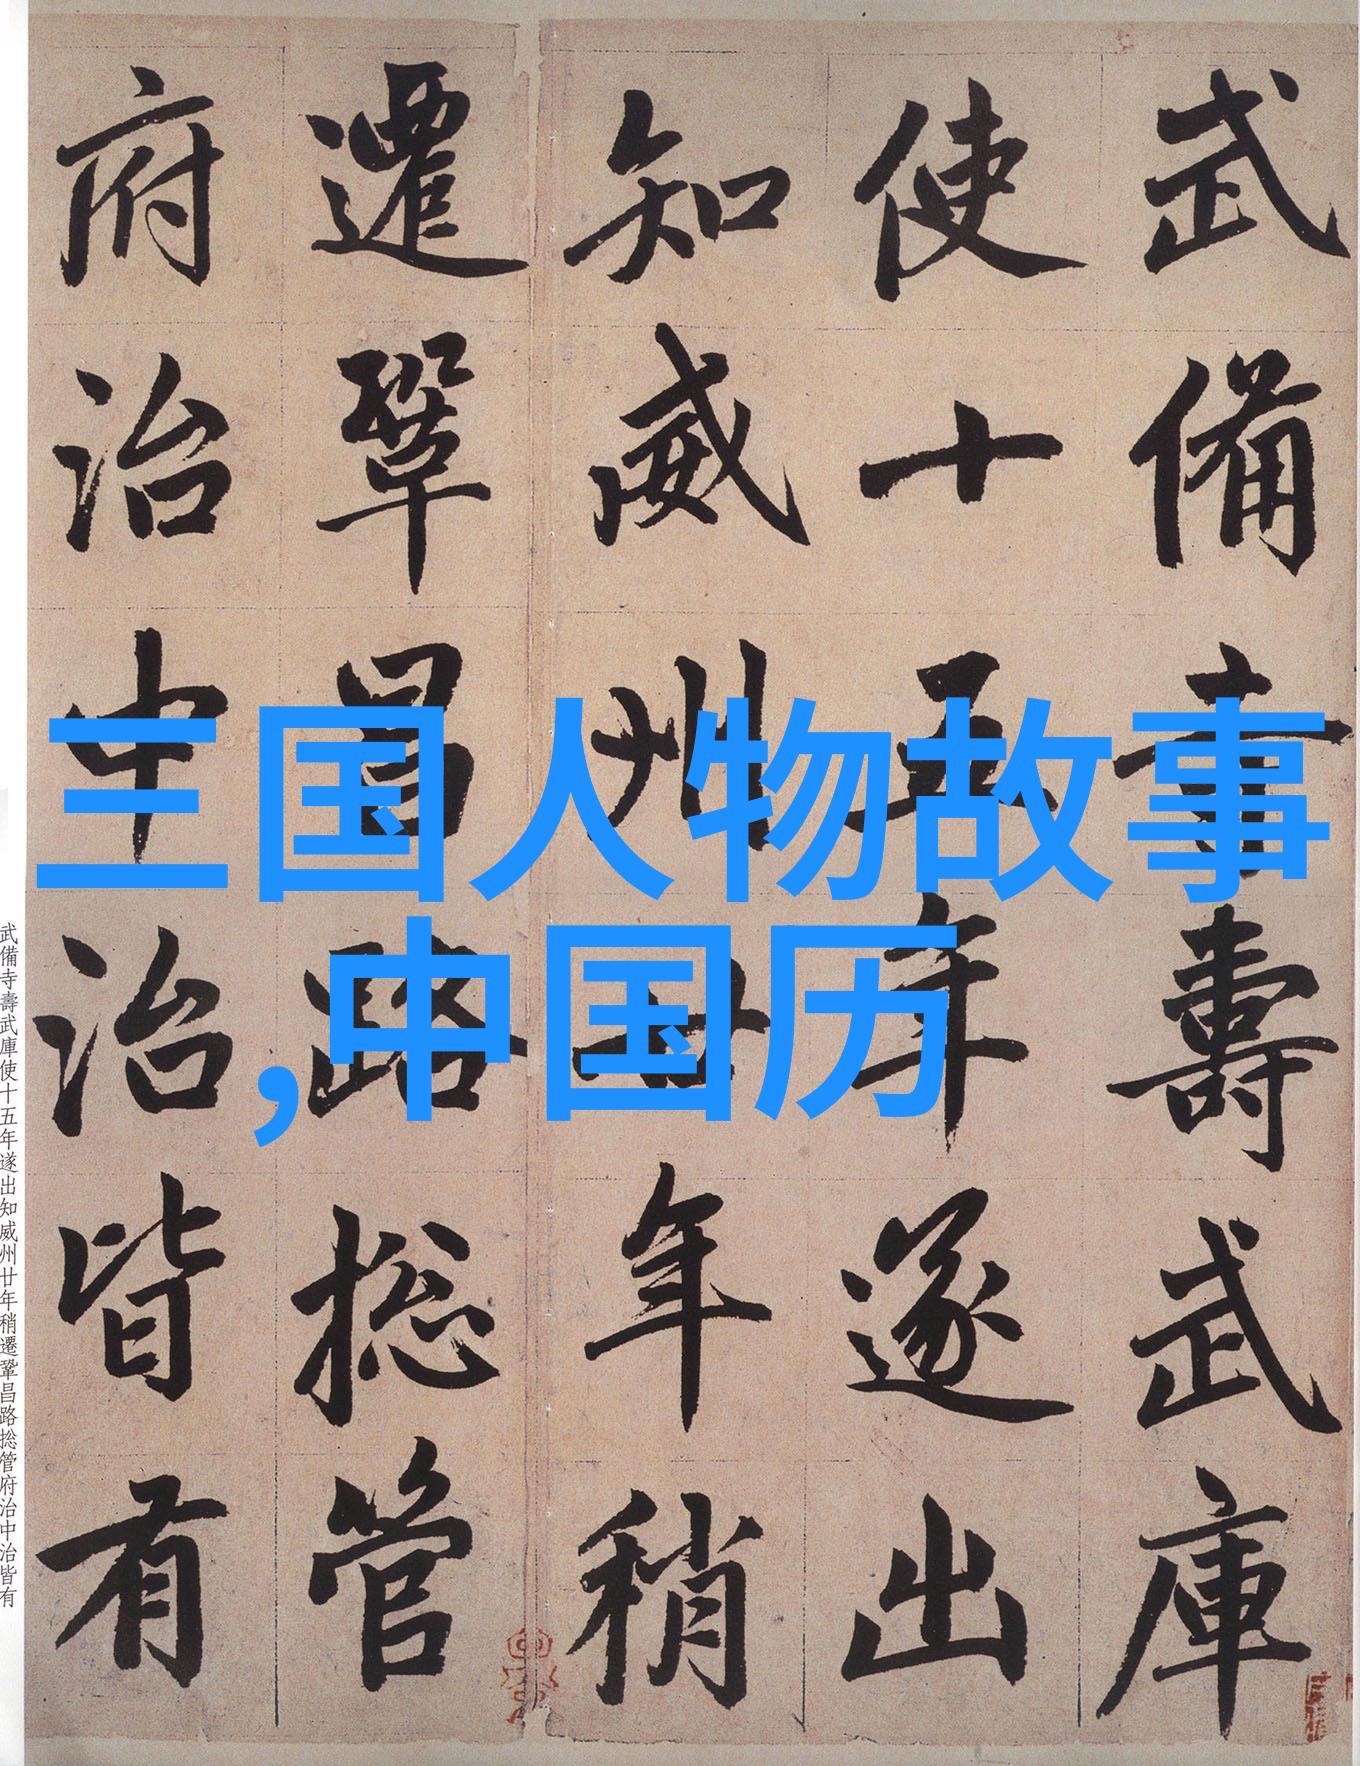 武備寺壽武庫
使十五年遂出
知威州廿年稍
遷鞏昌路捴管
府治中治皆有
三国人物故事
,中国历
武備寺壽武庫使十五年遂出知威州廿年稍遷鞏昌路捴管府治中治皆有